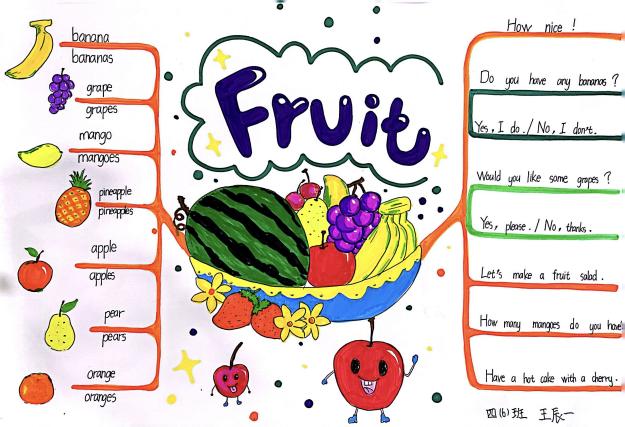 Fruit
banana
bananas
grape
grapes
mango
mangoes
pineapple
pineapples
apple
apples
pear
pears
orange
oranges
How nice !
Do you have any bananas ?
Yes, I do. / No, I don't.
Would you like some grapes ?
Yes, please. / No, thanks.
Let's make a fruit salad.
How many mangoes do you have
Have a hot cake with a cherry.
四(6)班 王辰一